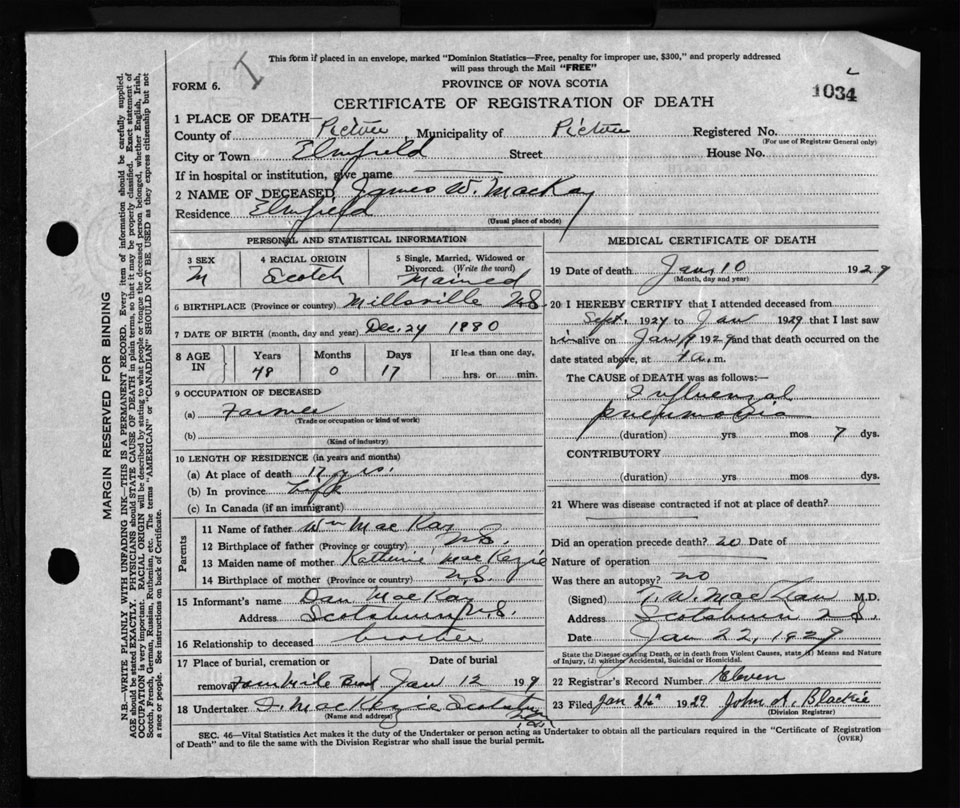 This form if placed in an envelope, marked "Dominion Statistics—Free, penalty for improper use, $300," and properly addressed
will pass through the Mail "FREE"
FORM 6.
PROVINCE OF NOVA SCOTIA
1034
CERTIFICATE OF REGISTRATION OF DEATH
1 PLACE OF DEATH—
County of Pictou, Municipality of Pictou Registered No.
(For use of Registrar General only)
City or Town Elmfield Street House No.
If in hospital or institution, give name
2 NAME OF DECEASED James W. MacKay
Residence Elmfield (Usual place of abode)
PERSONAL AND STATISTICAL INFORMATION
3 SEX M
4 RACIAL ORIGIN Scotch
5 Single, Married, Widowed or Divorced. (Write the word) Married
6 BIRTHPLACE (Province or country) Millsville N.S.
7 DATE OF BIRTH (month, day and year) Dec. 24 1880
8 AGE IN Years 48 Months 0 Days 17 If less than one day, hrs. or min.
9 OCCUPATION OF DECEASED
(a) Farmer
(Trade or occupation or kind of work)
(b)
(Kind of industry)
10 LENGTH OF RESIDENCE (in years and months)
(a) At place of death 17 yrs.
(b) In province Life
(c) In Canada (if an immigrant)
Parents
11 Name of father Wm MacKay
12 Birthplace of father (Province or country) N.S.
13 Maiden name of mother Katherine MacKezie
14 Birthplace of mother (Province or country) N.S.
15 Informant's name Dan MacKay
Address Scotsburn N.S.
16 Relationship to deceased brother
17 Place of burial, cremation or removal Date of burial
Jan 12 19
18 Undertaker MacKenzie Scotsburn
(Name and address)
MEDICAL CERTIFICATE OF DEATH
19 Date of death Jany 10 1929
(Month, day and year)
20 I HEREBY CERTIFY that I attended deceased from
Sept. 1924 to Jan 1929 that I last saw
him alive on Jan 1929 and that death occurred on the
date stated above, at a.m.
The CAUSE of DEATH was as follows:—
Influenzal
pneumonia
(duration) yrs mos 7 dys.
CONTRIBUTORY
(duration) yrs. mos. dys.
21 Where was disease contracted if not at place of death?
Did an operation precede death? no Date of
Nature of operation
Was there an autopsy? no
(Signed) W. MacLean M.D.
Address Scotsburn N.S.
Date Jan 22, 1929
State the Disease causing Death, or in death from Violent Causes, state (1) Means and Nature
of Injury, (2) whether Accidental, Suicidal or Homicidal.
22 Registrar's Record Number Eleven
23 Filed Jan 24 1929 John A. Blackie
(Division Registrar)
SEC. 46—Vital Statistics Act makes it the duty of the Undertaker or person acting as Undertaker to obtain all the particulars required in the "Certificate of Registration
of Death" and to file the same with the Division Registrar who shall issue the burial permit.
(OVER)
MARGIN RESERVED FOR BINDING
N.B.—WRITE PLAINLY, WITH UNFADING INK—THIS IS A PERMANENT RECORD. Every item of information should be carefully supplied.
AGE should be stated EXACTLY. PHYSICIANS should STATE CAUSE OF DEATH in plain terms, so that it may be properly classified. Exact statement of
OCCUPATION is very important. RACIAL ORIGIN will be described by stating to what people or tongue the deceased person belonged, whether English, Irish,
Scotch, French, German, Russian, Ruthenian, etc. The terms "AMERICAN" or "CANADIAN" SHOULD NOT BE USED as they express citizenship but not
a race or people. See instructions on back of Certificate.